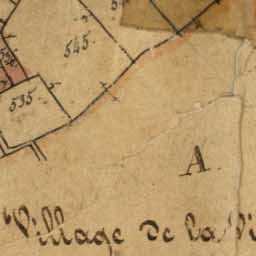 545
535
A
Village de la Vi